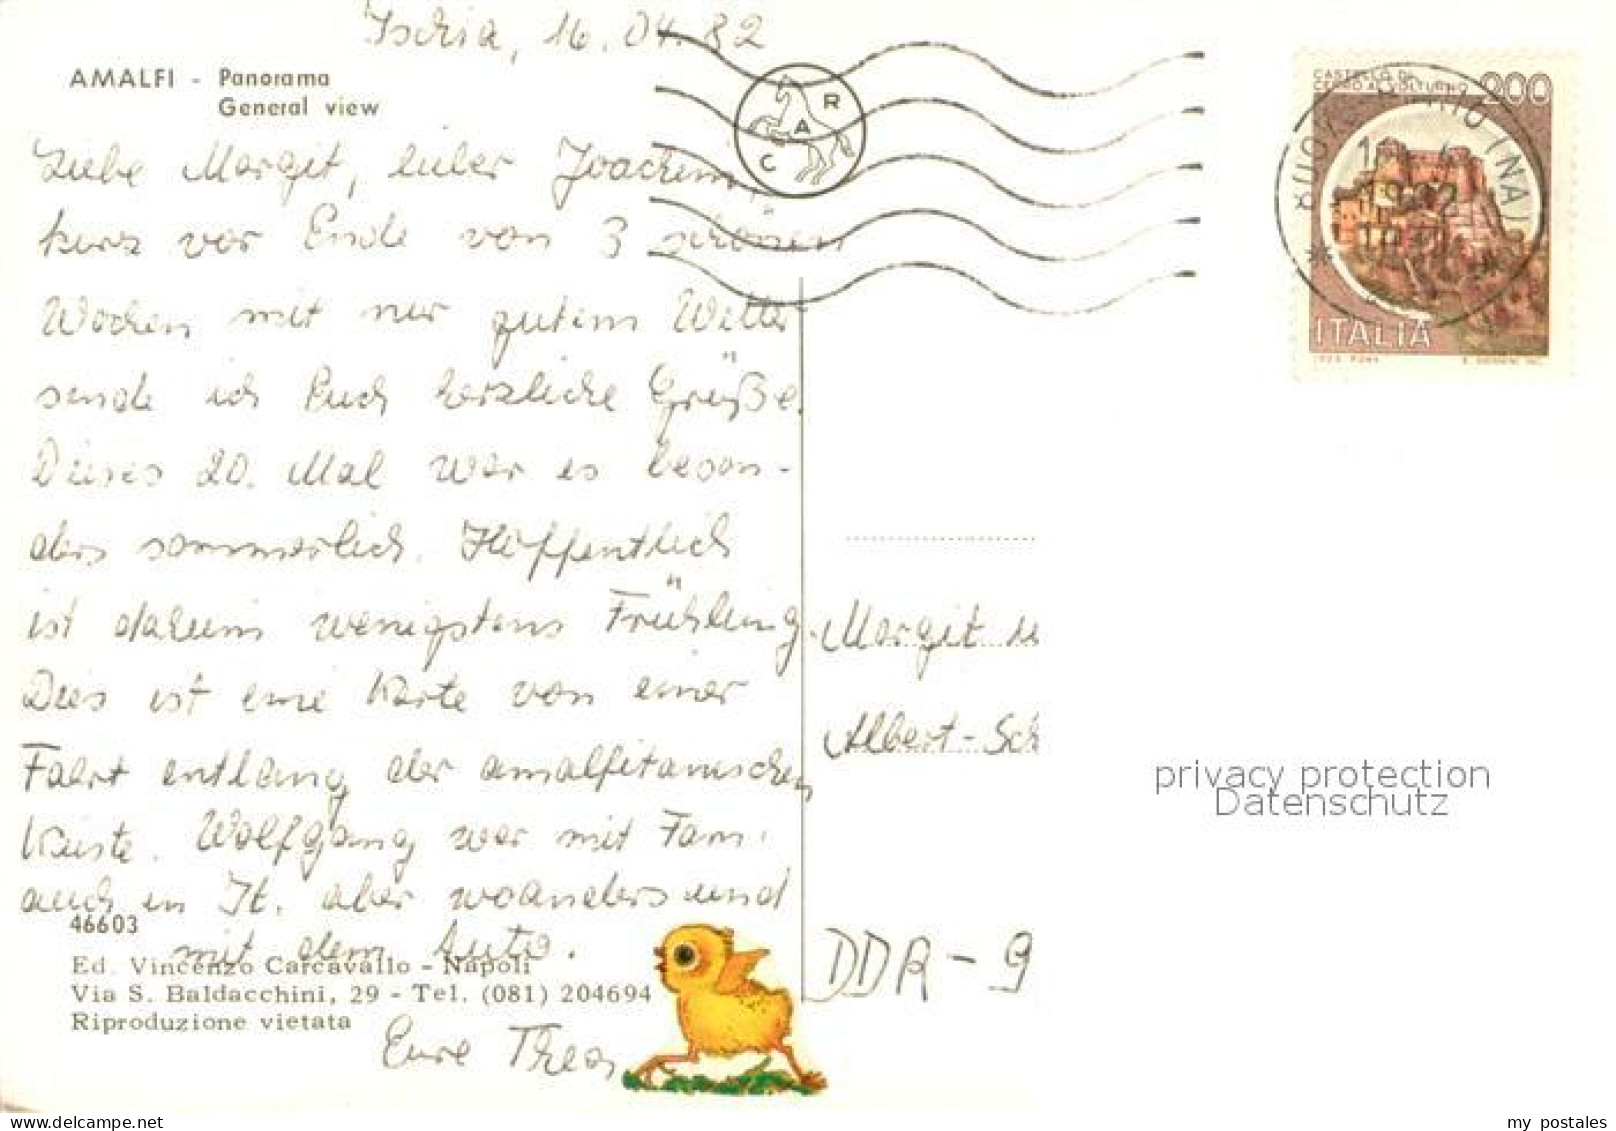 Ischia, 16.04.82
AMALFI - Panorama
General view
Liebe Margit, lieber Joachim,
kurz vor Ende von 3 schönen
Wochen mit nur gutem Wetter
sende ich Euch herzliche Grüße.
Dieses 20. Mal war es beson-
ders sommerlich. Hoffentlich
ist daheim wenigstens Frühling.
Dies ist eine Karte von einer
Fahrt entlang der amalfitanischen
Küste. Wolfgang war mit Fam.
auch in It. aber woanders und
mit dem Auto.
Eure Thea
46603
Ed. Vincenzo Carcavallo - Napoli
Via S. Baldacchini, 29 - Tel. (081) 204694
Riproduzione vietata
C A R
CASTELLO DI
CERRO AL VOLTURNO 200
1982
ITALIA
Margit u
Albert-Sch
DDR - 9
privacy protection
Datenschutz
delcampe.net
my_postales